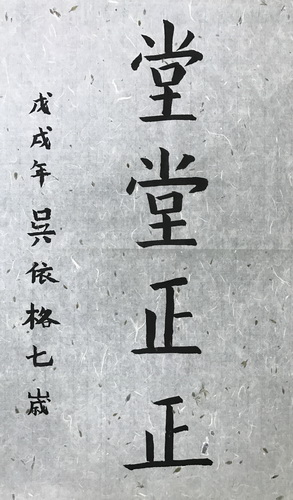 堂堂正正
戊戌年吳依格七歲